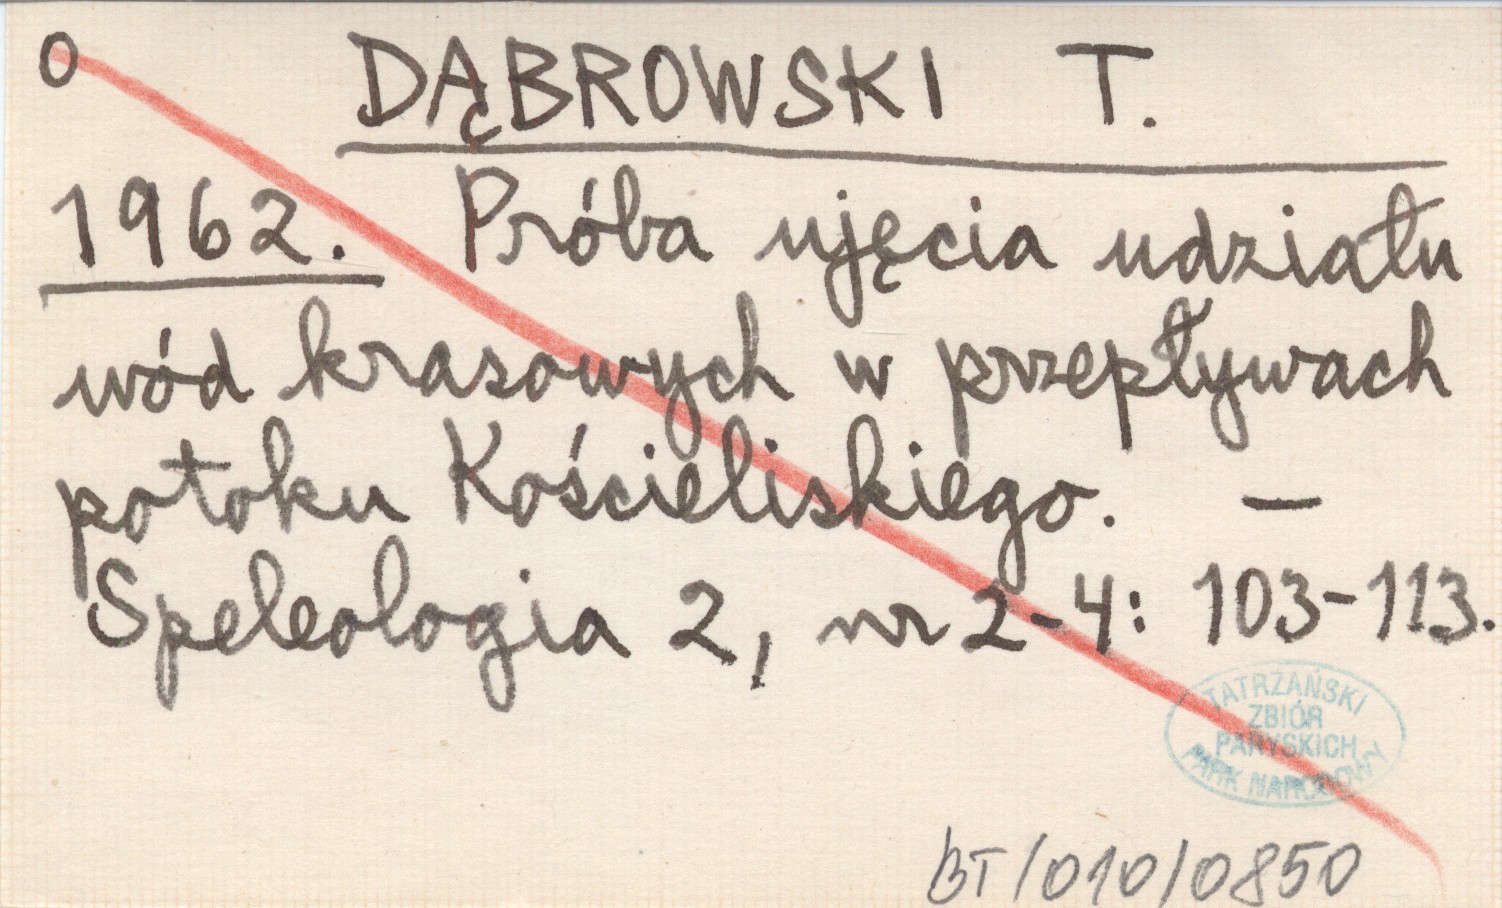 O DĄBROWSKI T.
1962. Próba ujęcia udziału
wód krasowych w przepływach
potoku Kościeliskiego. —
Speleologia 2, nr 2-4: 103-113.
TATRZAŃSKI
ZBIÓR
PARYSKICH
PARK NARODOWY
BT/010/0850